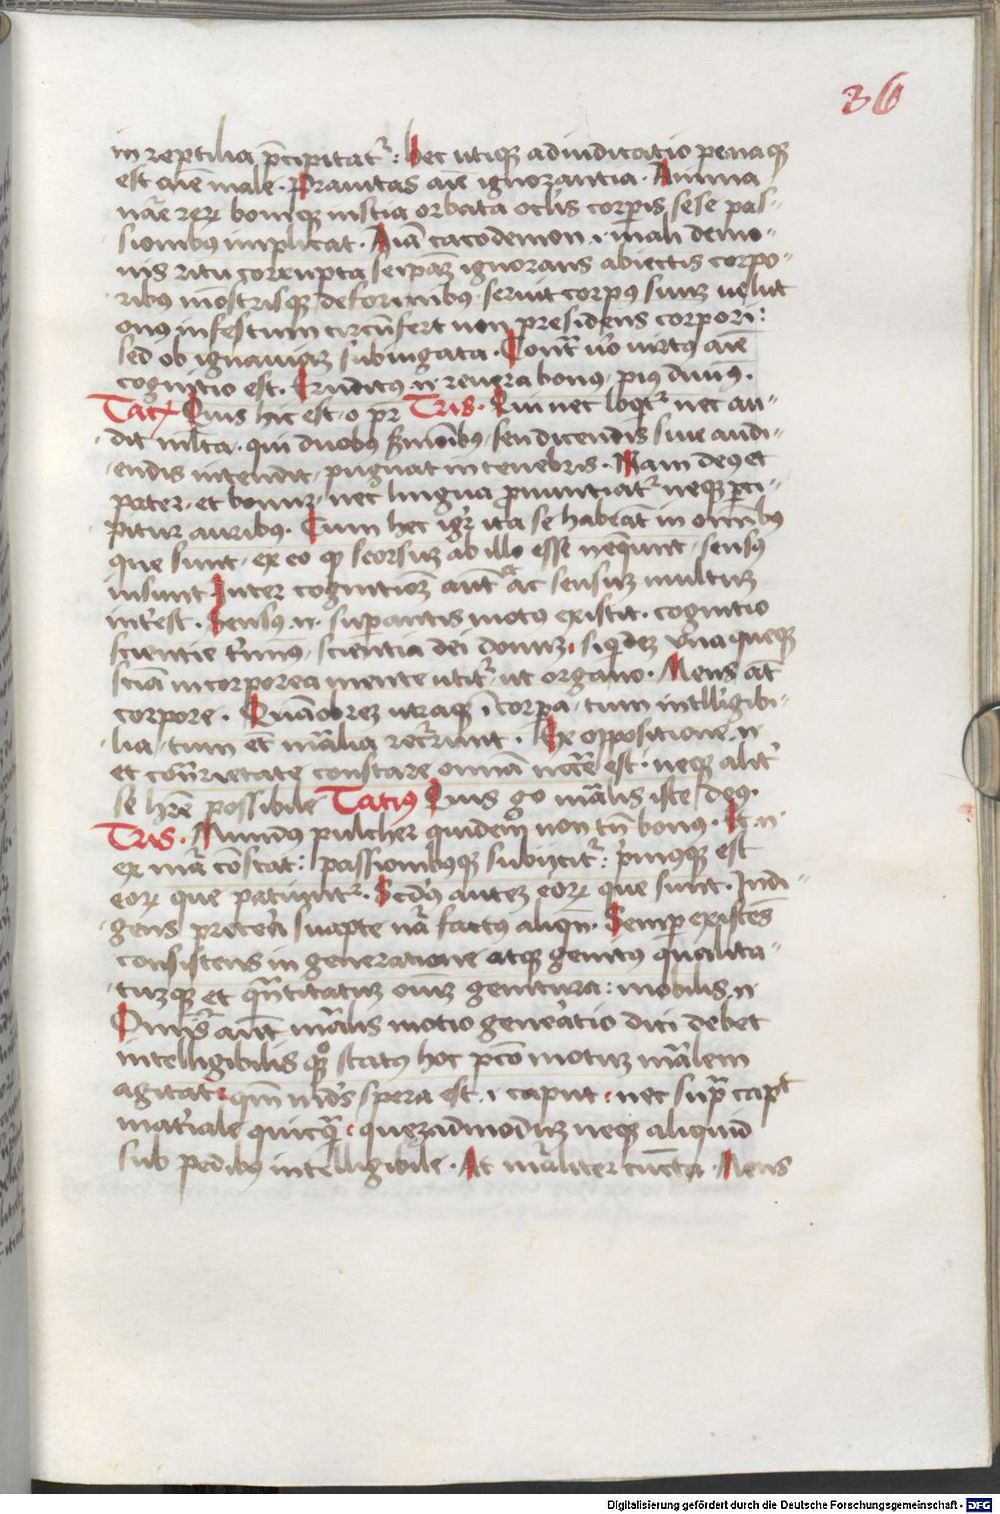 36
in reptilia p̄cipitatr̄ : hec utiqꝫ adiudicatio penaqꝫ
est aīe male . Prauitas aīe ignorantia . Anima
nāe rerꝝ boniqꝫ inscia orbata oclīs corpis sese pas-
sionibus implicat . Aīa cacodemon .i. mali demo-
nis ritu corrupta seipāꝫ ignorans abiectis corpo-
ribus mōstrisqꝫ deformibus seruit corpus suuꝫ uelut
onus infestum circūfert non presidens corpori :
sed ob ignauiaꝫ subiugata . Contr̄ uo uirtus aīe
cognitio est . Eruditus .n. reuera bonus , pius diuus .
Tatꝰ Quis hic est o pr̄ Tris . Qui nec loqtr̄ nec au-
dit mlta . qui duobus smōibus , seu dicendis siue audi-
endis intendit , pugnat in tenebris . Nam deus et
pater , et bonuꝫ , nec lingua pnuntiatr̄ neqꝫ pci-
pitur auribus . Cum hec igr̄ ita se habeāt in omībus
que sunt , ex eo qꝫ seorsuꝫ ab illo esse neq̄unt , sensus
insunt Inter cognitiōeꝫ aūt ac sensuꝫ multuꝫ
interest . Sensus .n. supantis motus existit . cognitio
scientie tīnus , scientia dei donuꝫ , siqdeꝫ unaqueqꝫ
sciā incorporea mente utitr̄ ut organo . Mens aūt
corpore . Quāobreꝫ utraqꝫ ī corpa , tum intelligibi-
lia , tum et mālia recr̄runt . Ex oppositione .n.
et contrietate constare omnia nccē est . neqꝫ alitr̄
se hrē possibile Tatius Quis go mālis iste deus .
Tris . Mundus pulcher quidem non tn̄ bonus . Et .n.
ex mā cōstat : passionibusqꝫ subijcitr̄ : pmusqꝫ est
eorꝝ que patiuntr̄ . Scdus auteꝫ eorꝝ que sunt . Indi-
gens preterā suapte nā factus aliqn̄ . Semp existēs
consistens in generatione atqꝫ genitus qualita-
tuꝫqꝫ et qn̄titatuꝫ oīuꝫ genitura : mobilis .n.
Omīs aūt mālis motio genēratio dici debet
intelligibilis qꝫ status hoc pcō motuꝫ mālem
agitat . qm̄ mds spera est .i. caput . nec supra capt
materiale quicq̄ . queꝫadmoduꝫ neqꝫ aliquid
sub pedibus intelligibile . At māliter cuncta . Mens
Digitalisierung gefördert durch die Deutsche Forschungsgemeinschaft - DFG